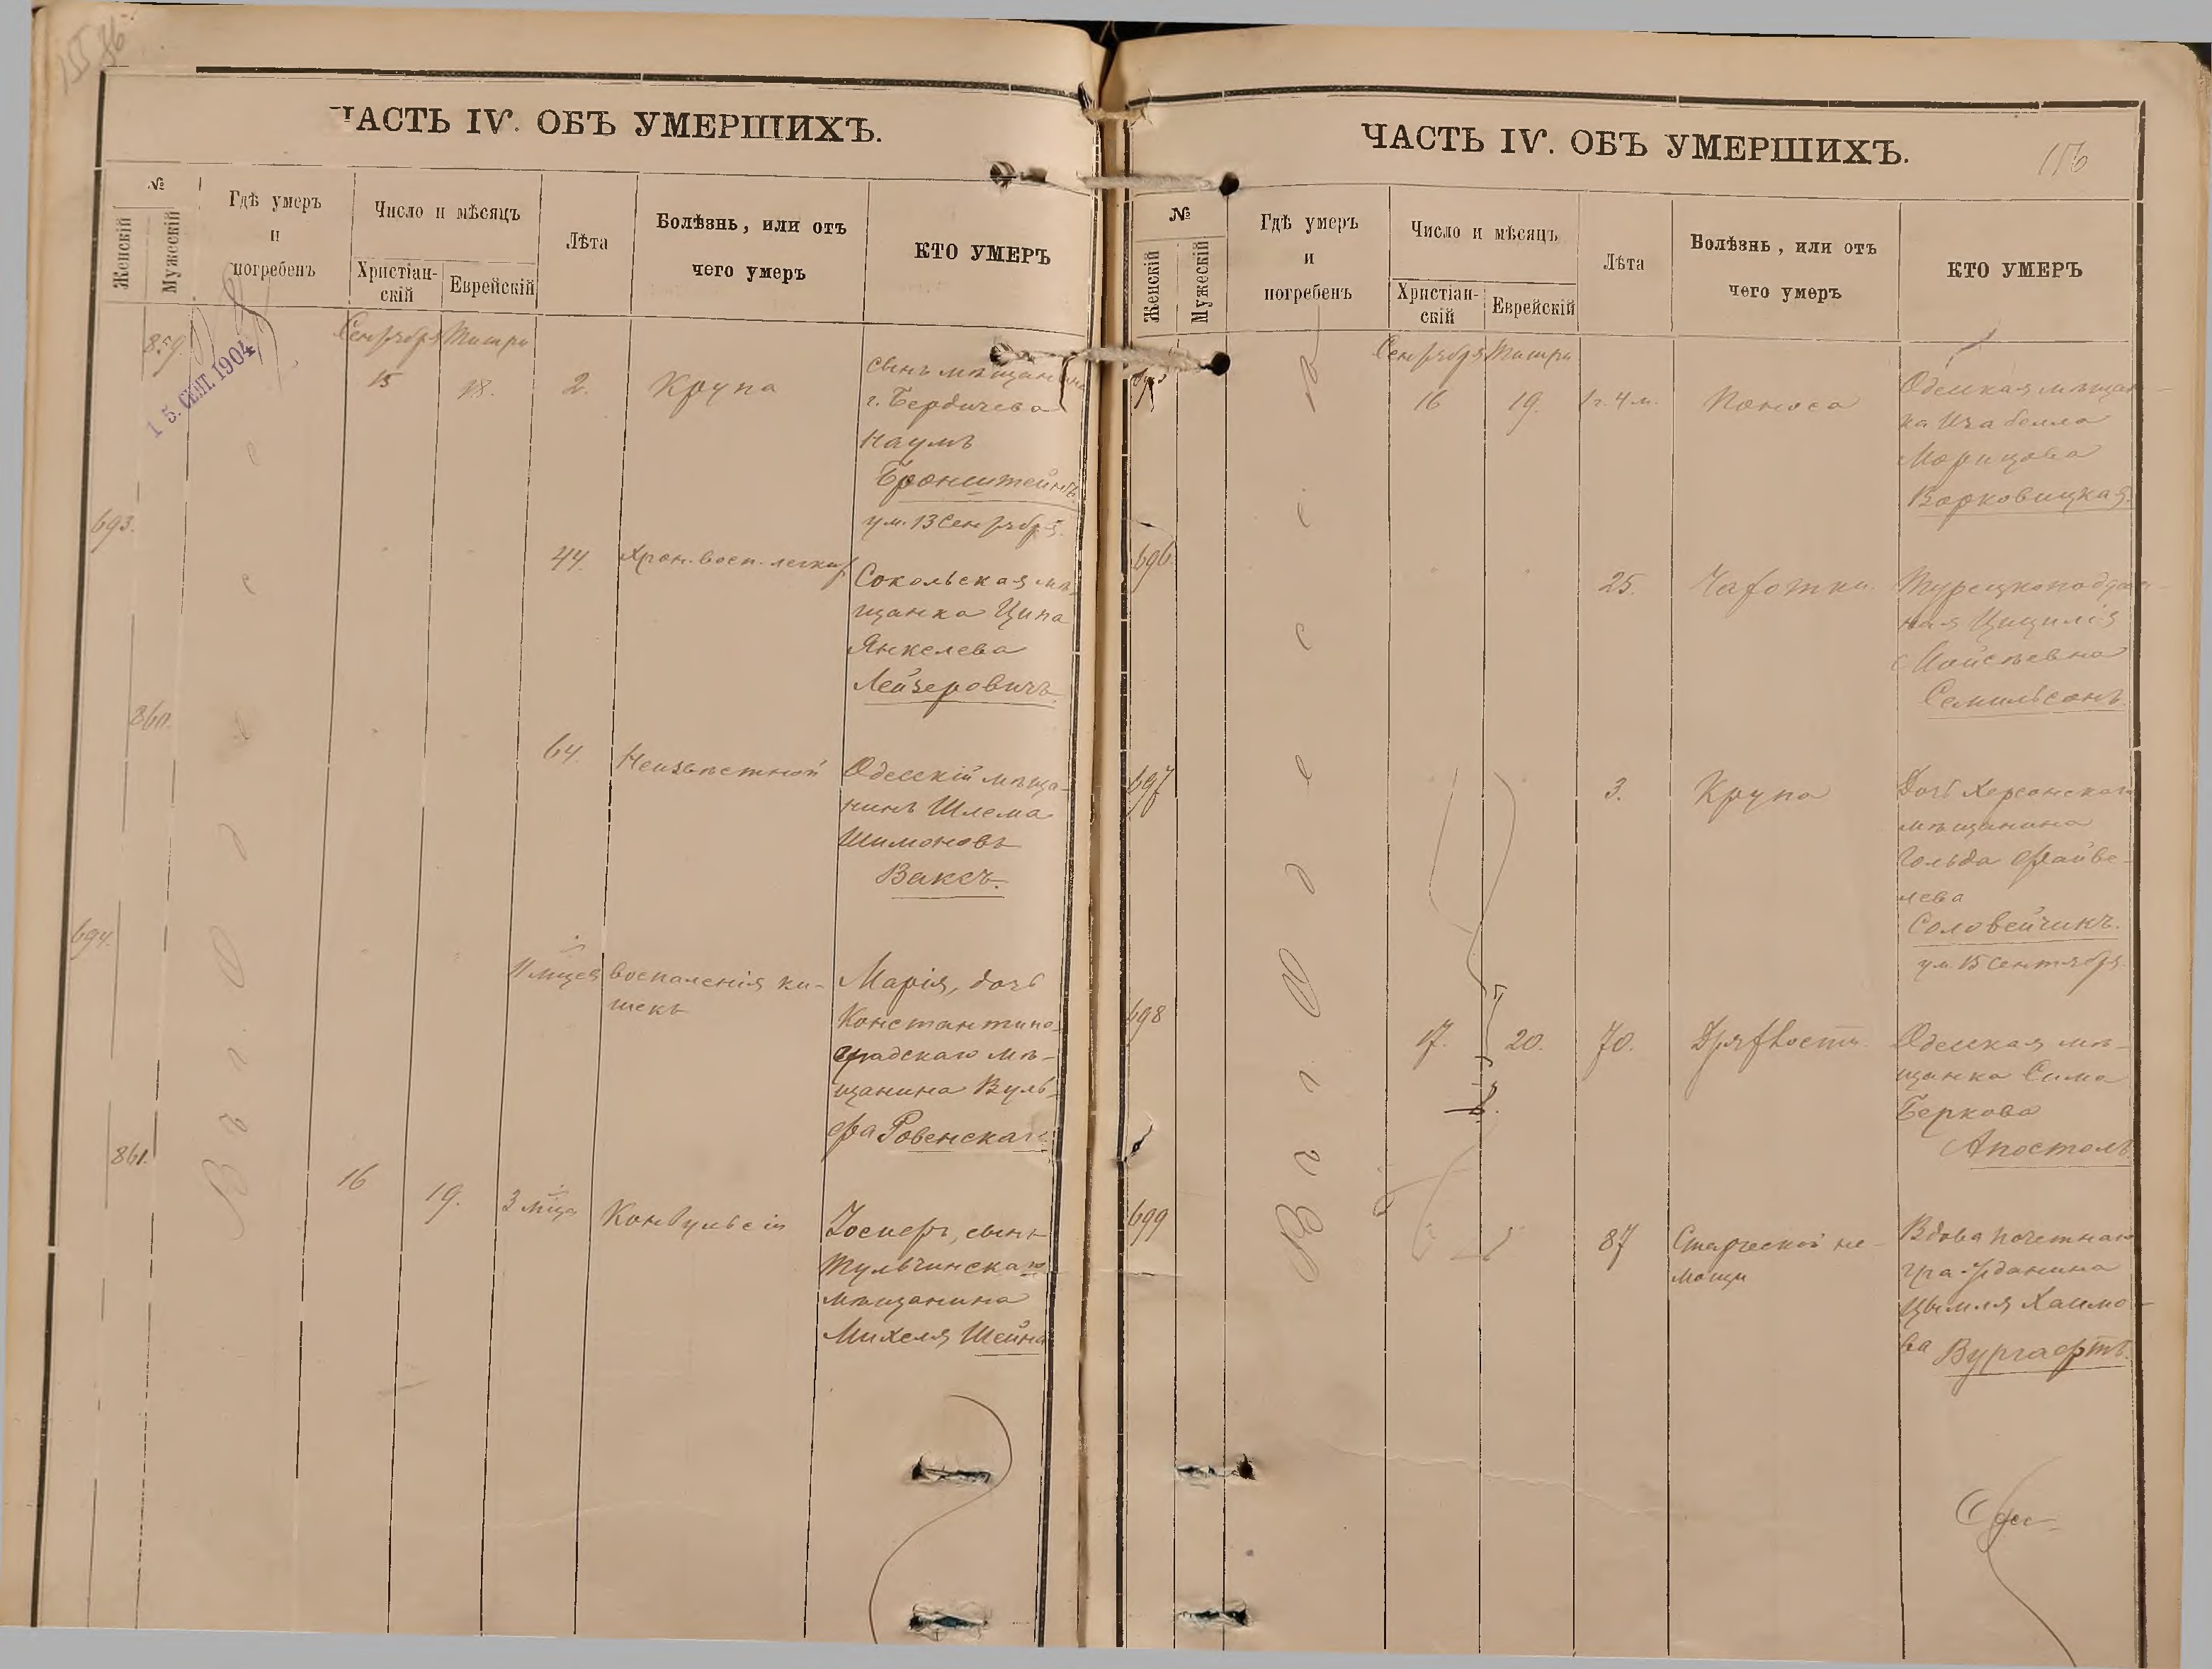 ЧАСТЬ IV. ОБЪ УМЕРШИХЪ.
№
Женскій
Мужескій
Гдѣ умеръ
и
погребенъ
Число и мѣсяцъ
Христіан-
скій
Еврейскій
Лѣта
Болѣзнь, или отъ
чего умеръ
КТО УМЕРЪ
859.
15. СЕНТ. 1904
Въ г. Одессѣ
Сентября Тишри
15
18.
2.
Крупа
Сынъ мѣщанина
г. Бердичева
Наумъ
Бронштейнъ
ум. 13 Сентября.
693.
44.
Хрон. восп. легких
Сокольская мѣ-
щанка Ципа
Янкелева
Лейзеровичъ
860.
64.
Неизвѣстной
Одесскій мѣща-
нинъ Шлема
Шимоновъ
Ваксъ.
694.
11 мцев
воспаленія ки-
шекъ
Марія, дочь
Константино-
градскаго мѣ-
щанина Вуль-
фа Ровенскаго
861.
16
19.
3 мца
Конвульсіи
Іосифъ, сынъ
Тульчинскаго
мѣщанина
Михеля Шейна
ЧАСТЬ IV. ОБЪ УМЕРШИХЪ.
156
№
Женскій
Мужескій
Гдѣ умеръ
и
погребенъ
Число и мѣсяцъ
Христіан-
скій
Еврейскій
Лѣта
Болѣзнь, или отъ
чего умеръ
КТО УМЕРЪ
Въ г. Одессѣ
Сентября Тишри
16
19.
1 г. 4 м.
Поноса
Одесская мѣщан-
ка Изабелла
Морицова
Ворковицкая.
696
25.
Чахотки.
Турецкоподдан-
ная Цицилія
Мойсеевна
Семильсонъ.
697
3.
Крупа
Дочь Херсонскаго
мѣщанина
Гольда Файве-
лева
Соловейчикъ.
ум. 15 Сентября
698
17.
20.
70.
Дряхлость.
Одесская мѣ-
щанка Сима
Беркова
Апостолъ.
699
87
Старческой не-
мощи
Вдова почетнаго
гражданина
Цымля Хаимо-
ва Вургафтъ.